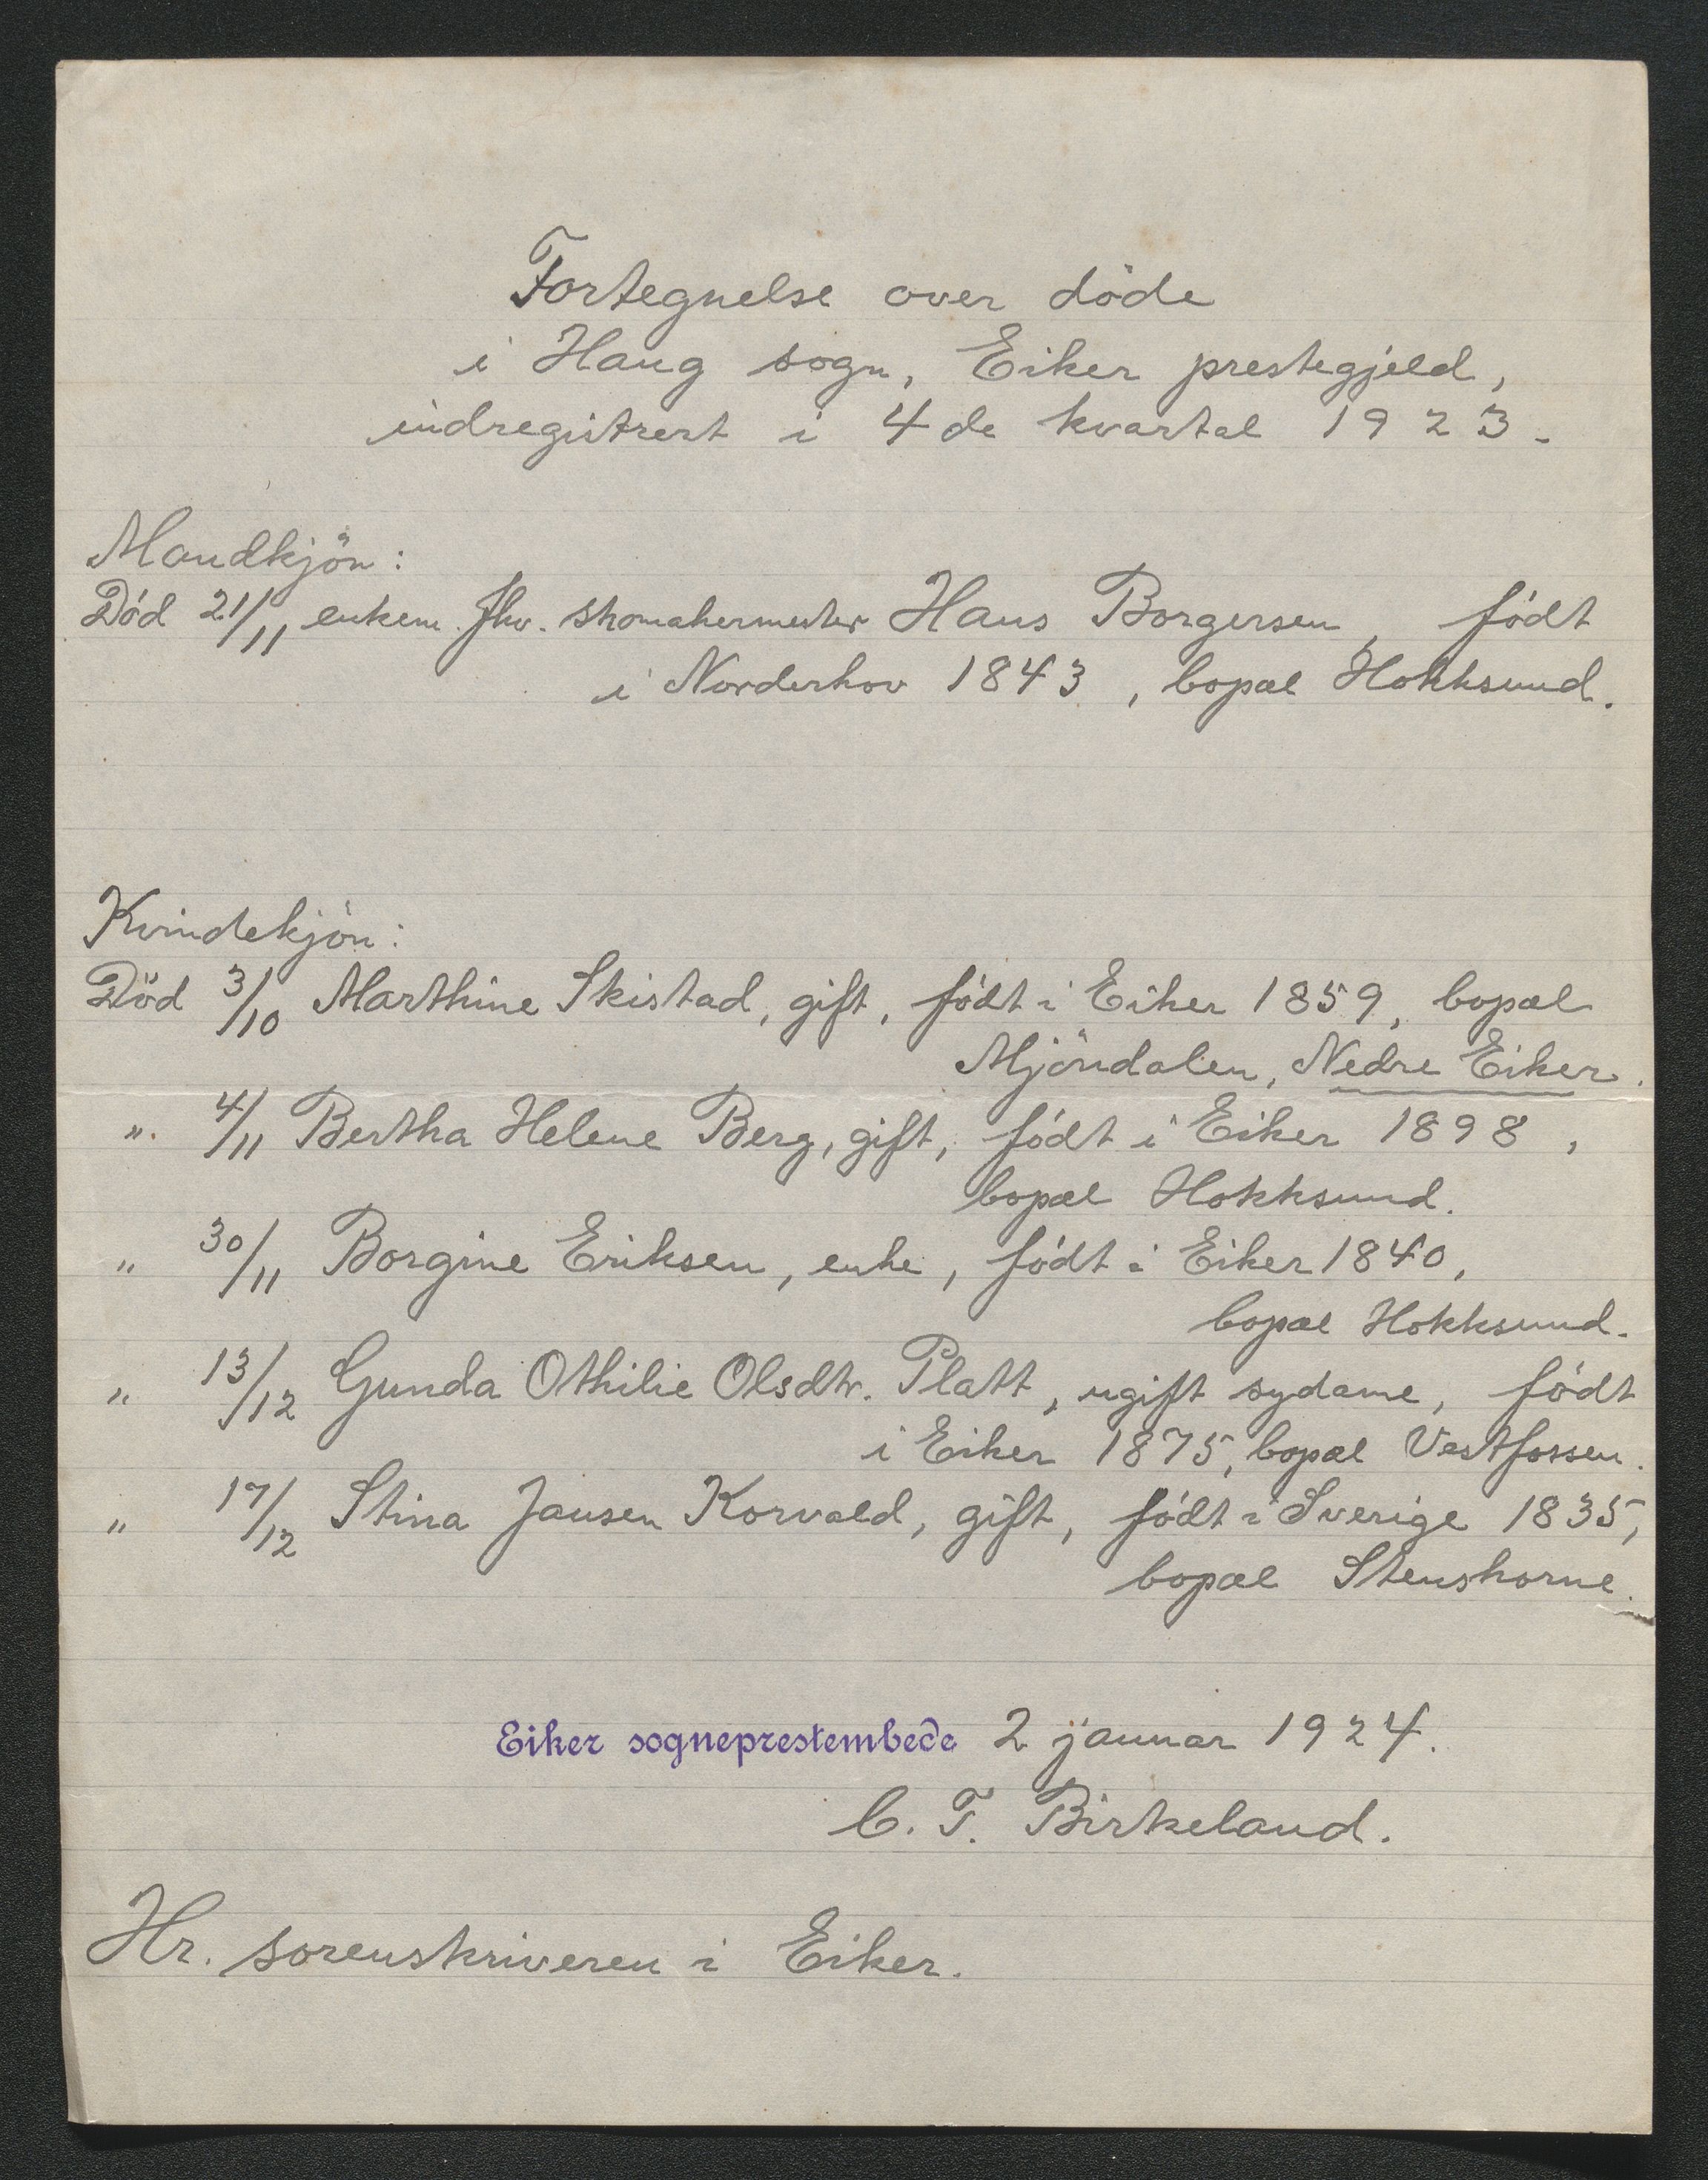 Fortegnelse over döde
i Haug sogn, Eiker prestegjeld,
indregistrert i 4de kvartal 1923.
Mandkjön:
Död 21/11 enkem. fhv. skomakermester Hans Borgersen, född
i Norderhov 1843, bopæl Hokksund.
Kvindekjön:
Död 3/10 Marthine Skistad, gift, födt i Eiker 1859, bopæl
Mjöndalen, Nedre Eiker.
" 4/11 Bertha Helene Berg, gift, födt i Eiker 1898,
bopæl Hokksund.
" 30/11 Borgine Eriksen, enke, födt i Eiker 1840,
bopæl Hokksund.
" 13/12 Gunda Othilie Olsdtr. Platt, ugift sydame, födt
i Eiker 1875, bopæl Vestfossen.
" 17/12 Stina Jansen Korvald, gift, födt i Sverige 1835,
bopæl Stenshorne.
Eiker sogneprestembede 2 januar 1924.
C. T. Birkeland.
Hr. sorenskriveren i Eiker.